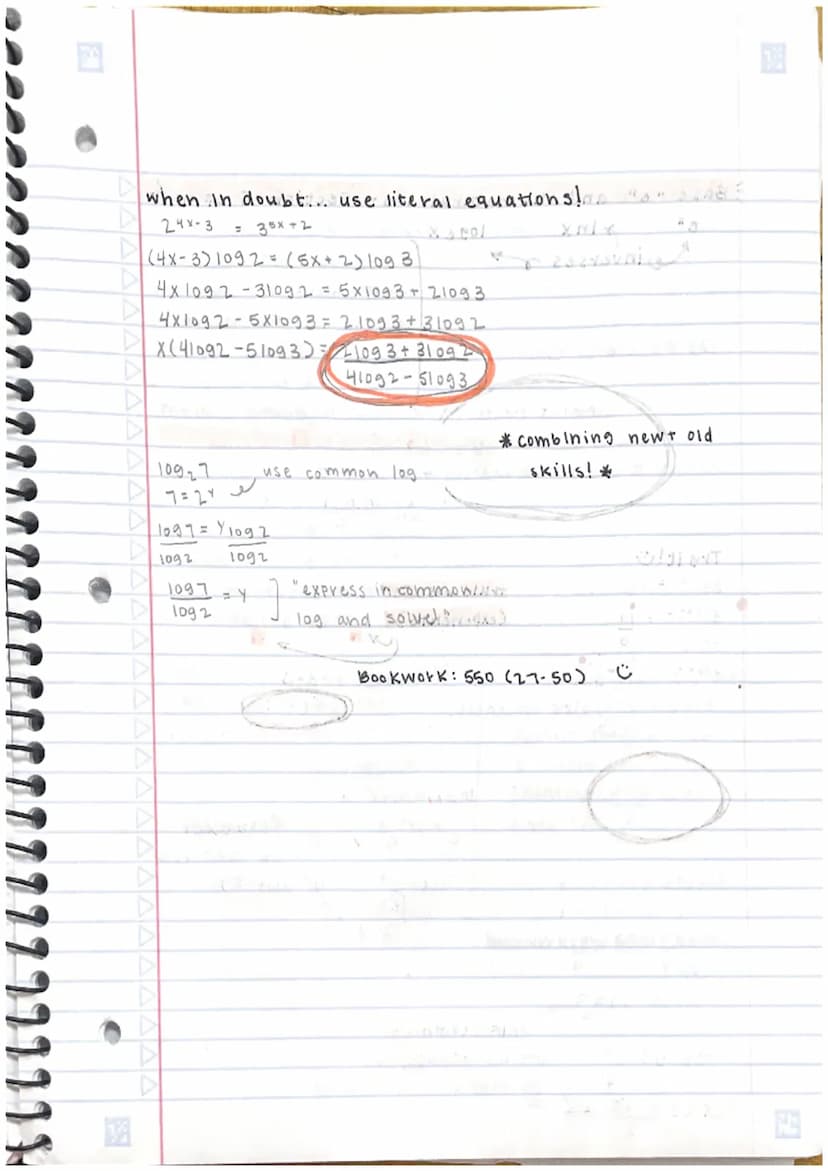 when in doubt... use literal equations!
2^4x-3 = 3^5x+2
(4x-3)log2 = (5x+2)log3
4xlog2 - 3log2 = 5xlog3 + 2log3
4xlog2 - 5xlog3 = 2log3 + 3log2
x(4log2 - 5log3) = 2log3 + 3log2
4log2 - 5log3
*combining new + old
skills! *
log₂7 use common log
7 = 2^y
log7 = y log2
log2 log2
log7 = y
log2
"express in common
log and solve"
Bookwork: 550 (27-50) ☺